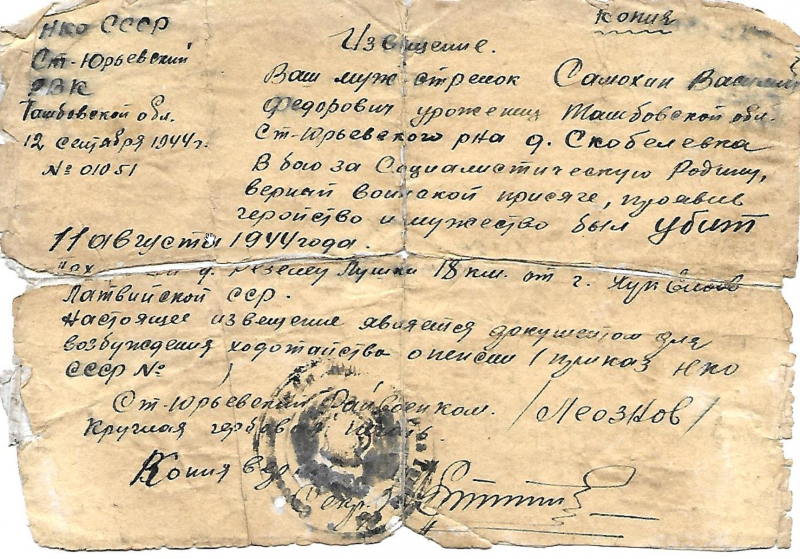 копия
НКО СССР
Ст-Юрьевский
РВК
Тамбовской обл.
12 сентября 1944г.
№ 01051
Извещение.
Ваш муж-стрелок Самохин Василий
Федорович уроженец Тамбовской обл.
Ст-Юрьевского р-на д. Скобелевка
В бою за Социалистическую Родину,
верный воинской присяге, проявив
геройство и мужество был убит
11 августа 1944 года.
д. Пушки 18 км. от г.
Латвийской ССР.
Настоящее извещение является документом для
возбуждения ходотайства о пенсии / приказ НКО
СССР №
Ст-Юрьевский Райвоенком. /Леозков/
Круглая гербовая печать.
Копия